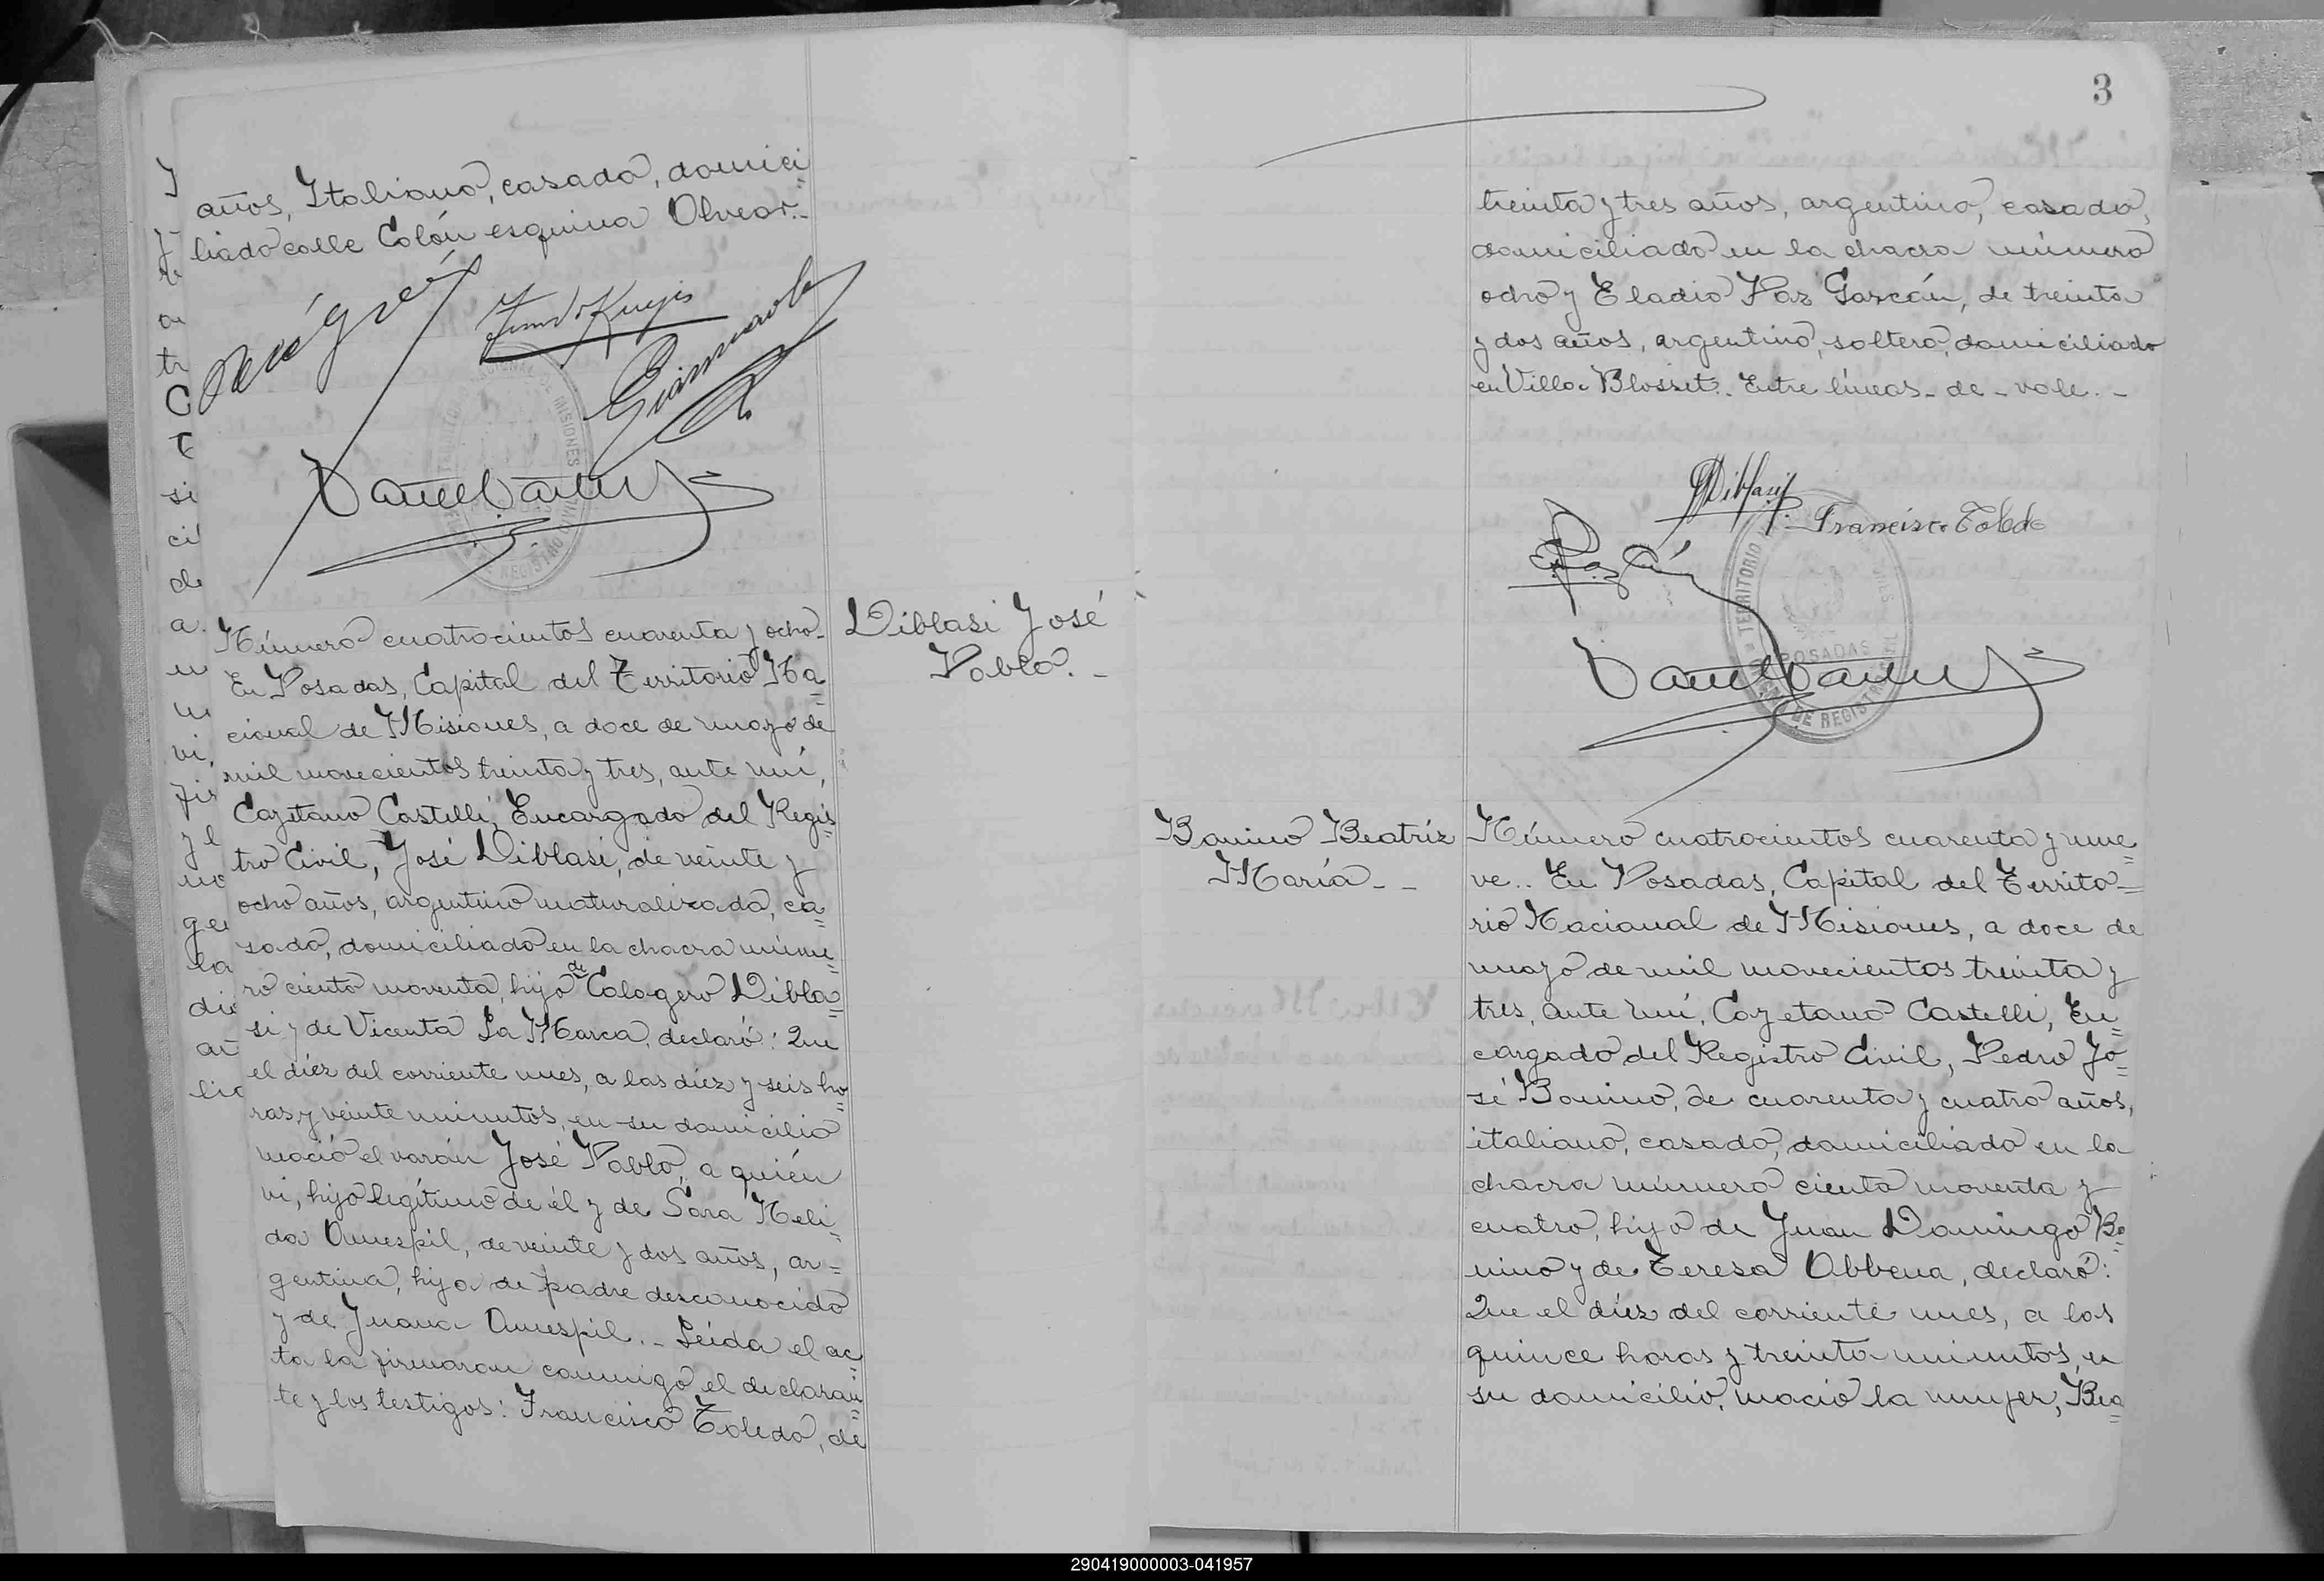 años, Italiano, casado, domici
liado calle Colón esquina Alvear.-
TERRITORIO NACIONAL DE MISIONES
POSADAS
REGISTRO CIVIL
Número cuatrocientos cuarenta y ocho.
En Posadas, Capital del Territorio Na=
cional de Misiones, a doce de mayo de
mil novecientos treinta y tres, ante mí,
Cayetano Castelli, Encargado del Regis=
tro Civil, José Diblasi, de veinte y
ocho años, argentino naturalizado, ca=
sado, domiciliado en la chacra núme=
ro ciento noventa, hijo de Calogero Dibla=
si y de Vicenta La Marca, declaró: Que
el diéz del corriente mes, a las diéz y seis ho=
ras y veinte minutos, en su domicilio
nació el varón José Pablo, a quién
ví, hijo legítimo de él y de Sara Neli=
da Amespil, de veinte y dos años, ar=
gentina, hija de padre desconocido
y de Juana Amespil.- Leída el ac=
ta la firmaron conmigo el declaran=
te y los testigos: Francisco Toledo, de
Diblasi José
Pablo.-
3
treinta y tres años, argentino, casado,
domiciliado en la chacra número
ocho y Eladio Paz Garzón, de treinta
y dos años, argentino, soltero, domiciliado
en Villa Blosset.- Entre líneas-de-vale.-
JDiblasi
Francisco Toledo
TERRITORIO
POSADAS
DE REGISTRO
Bonino Beatríz
María.--
Número cuatrocientos cuarenta y nue=
ve.. En Posadas, Capital del Territo=
rio Nacional de Misiones, a doce de
mayo de mil novecientos treinta y
tres, ante mí, Cayetano Castelli, En=
cargado del Registro Civil, Pedro Jo=
sé Bonino, de cuarenta y cuatro años,
italiano, casado, domiciliado en la
chacra número ciento noventa y
cuatro, hijo de Juan Domingo Bo=
nino y de Teresa Abbena, declaró:
Que el diéz del corriente mes, a las
quince horas y treinta minutos, en
su domicilio, nació la mujer, Bea=
290419000003-041957